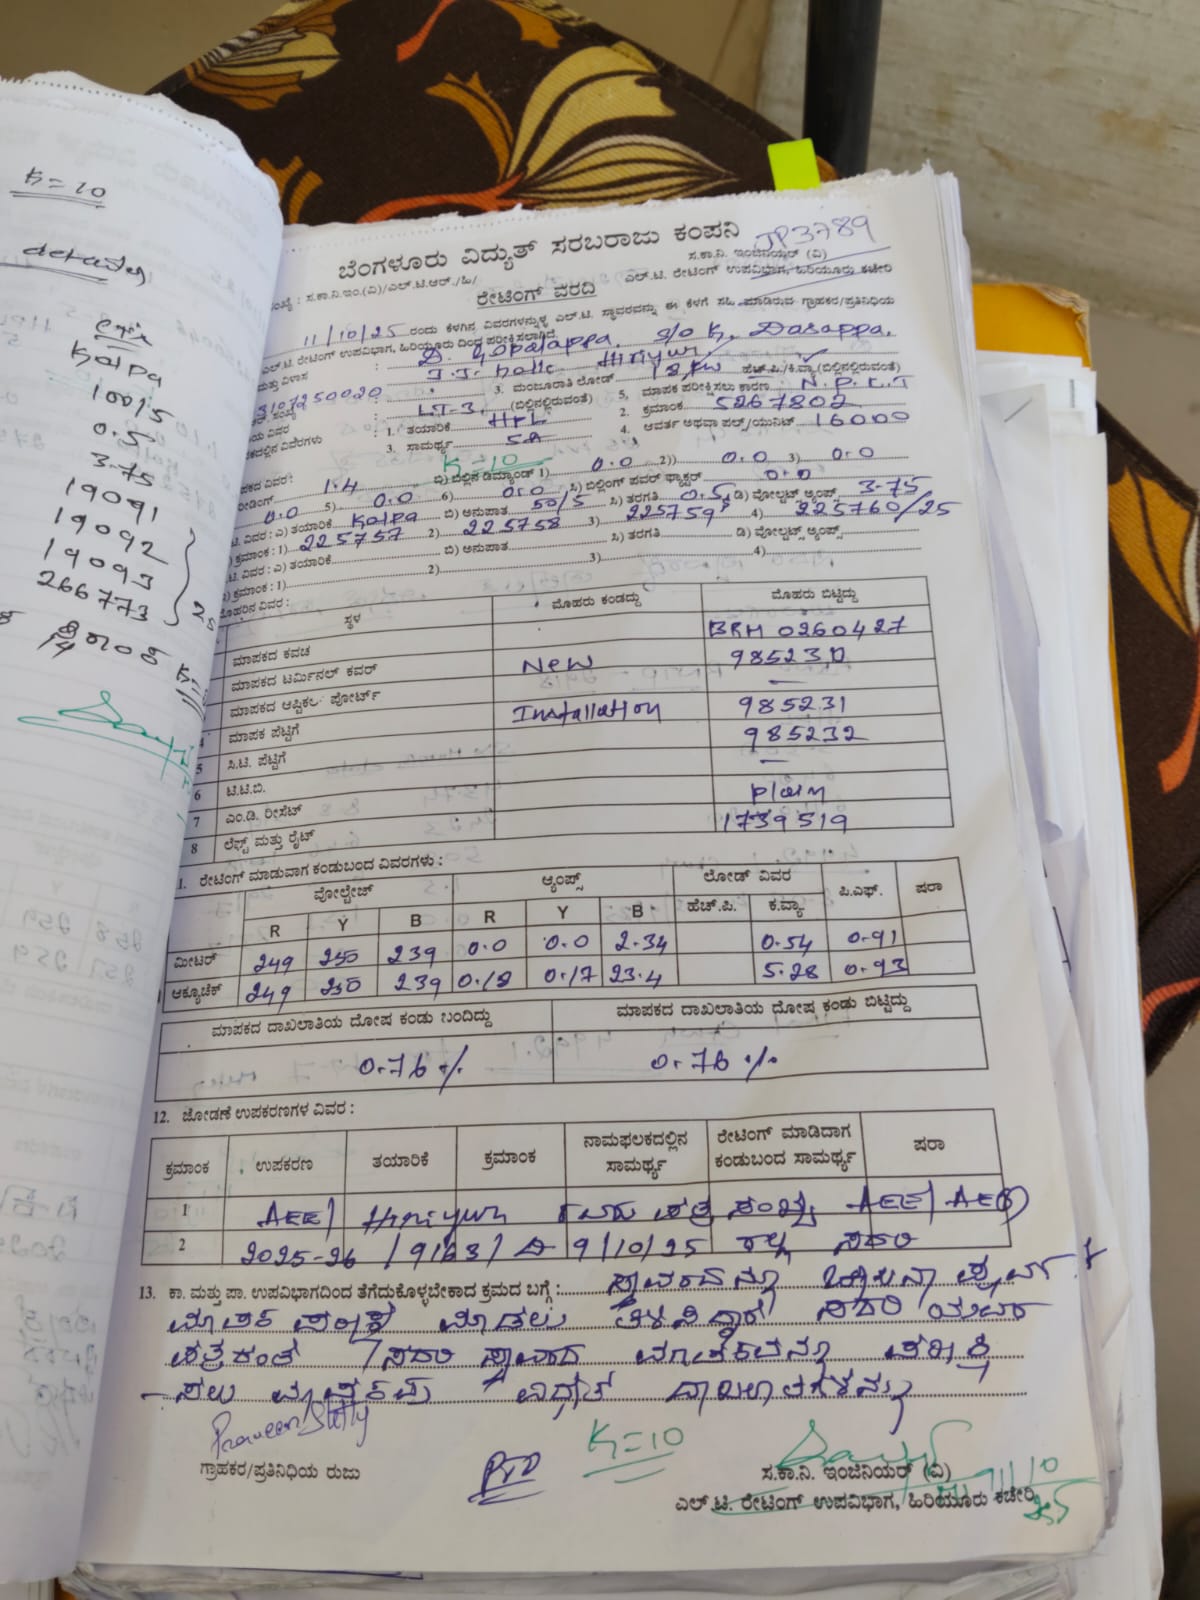 K=10
Kalpa
100/5
0.5
3.75
19091
19092
19093
266773
JP3789
ಬೆಂಗಳೂರು ವಿದ್ಯುತ್ ಸರಬರಾಜು ಕಂಪನಿ
ಸ.ಕಾ.ನಿ. ಇಂಜಿನಿಯರ್ (ವಿ)
ಸಂಖ್ಯೆ : ಸ.ಕಾ.ನಿ.ಇಂ.(ವಿ)/ಎಲ್.ಟಿ.ಆರ್./ಹಿ/ ಎಲ್.ಟಿ. ರೇಟಿಂಗ್ ಉಪವಿಭಾಗ, ಹಿರಿಯೂರು ಕಚೇರಿ
ರೇಟಿಂಗ್ ವರದಿ
11/10/25 ರಂದು ಕೆಳಗಿನ ವಿವರಗಳನ್ನುಳ್ಳ ಎಲ್.ಟಿ. ಸ್ಥಾವರವನ್ನು ಈ ಕೆಳಗೆ ಸಹಿ ಮಾಡಿರುವ ಗ್ರಾಹಕರ/ಪ್ರತಿನಿಧಿಯ
ಎಲ್.ಟಿ. ರೇಟಿಂಗ್ ಉಪವಿಭಾಗ, ಹಿರಿಯೂರು ದಿಂದ ಪರೀಕ್ಷಿಸಲಾಗಿದೆ.
ಮತ್ತು ವಿಳಾಸ : D. Gopalappa. S/o K. Dasappa.
Hiriyur
3107250020 3. ಮಂಜೂರಾತಿ ಲೋಡ್ 18 KW ಹೆಚ್.ಪಿ./ಕಿ.ವ್ಯಾ.(ಬಿಲ್ಲಿನಲ್ಲಿರುವಂತೆ)
: LT-3. (ಬಿಲ್ಲಿನಲ್ಲಿರುವಂತೆ) 5. ಮಾಪಕ ಪರೀಕ್ಷಿಸಲು ಕಾರಣ N.P.L.T
: 1. ತಯಾರಿಕೆ HPL 2. ಕ್ರಮಾಂಕ 5267802
3. ಸಾಮರ್ಥ್ಯ 5A 4. ಆವರ್ತ ಅಥವಾ ಪಲ್ಸ್/ಯುನಿಟ್ 16000
K=10
1.4 ಬಿ) ಬಿಲ್ಲಿನ ಡಿಮ್ಯಾಂಡ್ 1) 0.0 2) 0.0 3) 0.0
0.0 5) 0.0 6) 0.0 ಸಿ) ಬಿಲ್ಲಿಂಗ್ ಪವರ್ ಫ್ಯಾಕ್ಟರ್ 0.0
ವಿವರ : ಎ) ತಯಾರಿಕೆ Kalpa ಬಿ) ಅನುಪಾತ 50/5 ಸಿ) ತರಗತಿ 0.5 ಡಿ) ವೋಲ್ಟಟ್ ಆ್ಯಂಪ್ಸ್ 3.75
ಕ್ರಮಾಂಕ : 1) 225757 2) 225758 3) 225759 4) 225760/25
ವಿವರ : ಎ) ತಯಾರಿಕೆ ಬಿ) ಅನುಪಾತ ಸಿ) ತರಗತಿ ಡಿ) ವೋಲ್ಟಟ್ ಆ್ಯಂಪ್ಸ್
ಕ್ರಮಾಂಕ : 1) 2) 3) 4)
ಸ್ಥಳ ಮೊಹರು ಕಂಡದ್ದು ಮೊಹರು ಬಿಟ್ಟಿದ್ದು
ಮಾಪಕದ ಕವಚ BRM 0260427
ಮಾಪಕದ ಟರ್ಮಿನಲ್ ಕವರ್ New 985230
ಮಾಪಕದ ಆಪ್ಟಿಕಲ್ ಪೋರ್ಟ್ —
4 ಮಾಪಕ ಪೆಟ್ಟಿಗೆ Installation 985231
5 ಸಿ.ಟಿ. ಪೆಟ್ಟಿಗೆ 985232
6 ಟಿ.ಟಿ.ಬಿ. —
7 ಎಂ.ಡಿ. ರೀಸೆಟ್ Plain
8 ಲೆಫ್ಟ್ ಮತ್ತು ರೈಟ್ 1739519
1. ರೇಟಿಂಗ್ ಮಾಡುವಾಗ ಕಂಡುಬಂದ ವಿವರಗಳು :
ವೋಲ್ಟೇಜ್ ಆ್ಯಂಪ್ಸ್ ಲೋಡ್ ವಿವರ ಪಿ.ಎಫ್. ಷರಾ
R Y B R Y B ಹೆಚ್.ಪಿ. ಕಿ.ವ್ಯಾ.
ಮೀಟರ್ 249 250 239 0.0 0.0 2.34 0.54 0.91
ಆಕ್ಯೂಚೆಕ್ 249 250 239 0.12 0.17 23.4 5.28 0.93
ಮಾಪಕದ ದಾಖಲಾತಿಯ ದೋಷ ಕಂಡು ಬಂದಿದ್ದು ಮಾಪಕದ ದಾಖಲಾತಿಯ ದೋಷ ಕಂಡು ಬಿಟ್ಟಿದ್ದು
0.76 % 0.76 %
12. ಜೋಡಣೆ ಉಪಕರಣಗಳ ವಿವರ :
ಕ್ರಮಾಂಕ ಉಪಕರಣ ತಯಾರಿಕೆ ಕ್ರಮಾಂಕ ನಾಮಫಲಕದಲ್ಲಿನ ಸಾಮರ್ಥ್ಯ ರೇಟಿಂಗ್ ಮಾಡಿದಾಗ ಕಂಡುಬಂದ ಸಾಮರ್ಥ್ಯ ಷರಾ
1 AEE/ Hiriyur ರವರ ಪತ್ರ ಸಂಖ್ಯೆ AEE/AE
2 2025-26 /9163/ D 9/10/25
13. ಕಾ. ಮತ್ತು ಪಾ. ಉಪವಿಭಾಗದಿಂದ ತೆಗೆದುಕೊಳ್ಳಬೇಕಾದ ಕ್ರಮದ ಬಗ್ಗೆ : ಸ್ಥಾವರವನ್ನು
ಮಾಡಲು ತಿಳಿಸಿದ್ದಾರೆ ಸದರಿ
ಪತ್ರದಂತೆ ಸದರಿ ಸ್ಥಾವರದ ಮಾಪಕವನ್ನು ಪರೀಕ್ಷಿ
ಸಲು ಮಾಪಕವು ವಿದ್ಯುತ್
Praveen Shetty
ಗ್ರಾಹಕರ/ಪ್ರತಿನಿಧಿಯ ರುಜು
K=10
ಸ.ಕಾ.ನಿ. ಇಂಜಿನಿಯರ್ (ವಿ)
ಎಲ್.ಟಿ. ರೇಟಿಂಗ್ ಉಪವಿಭಾಗ, ಹಿರಿಯೂರು ಕಚೇರಿ